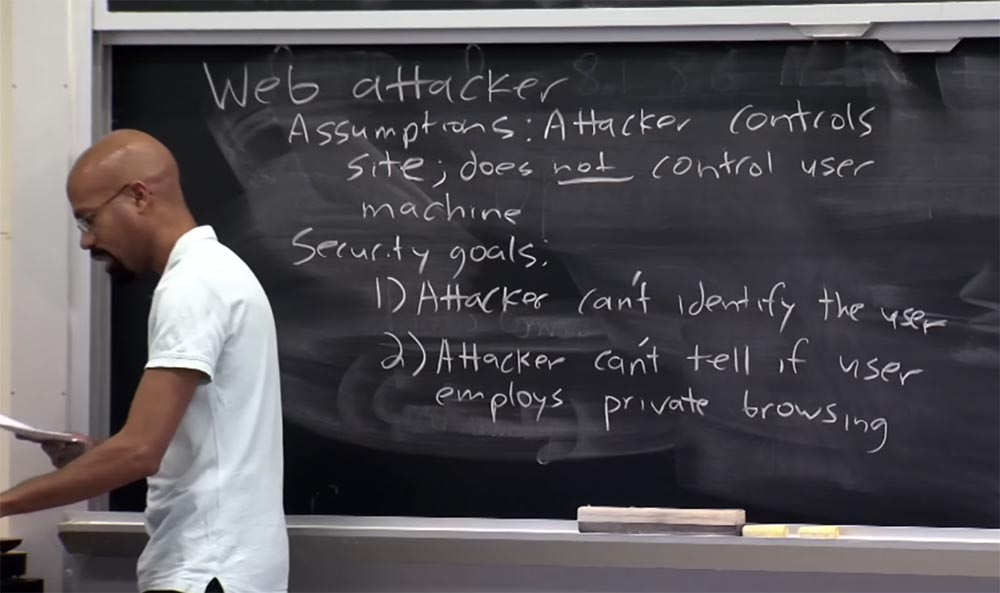 Web attacker
Assumptions: Attacker controls
site; does not control user
machine
Security goals:
1) Attacker can't identify the user
2) Attacker can't tell if user
employs private browsing